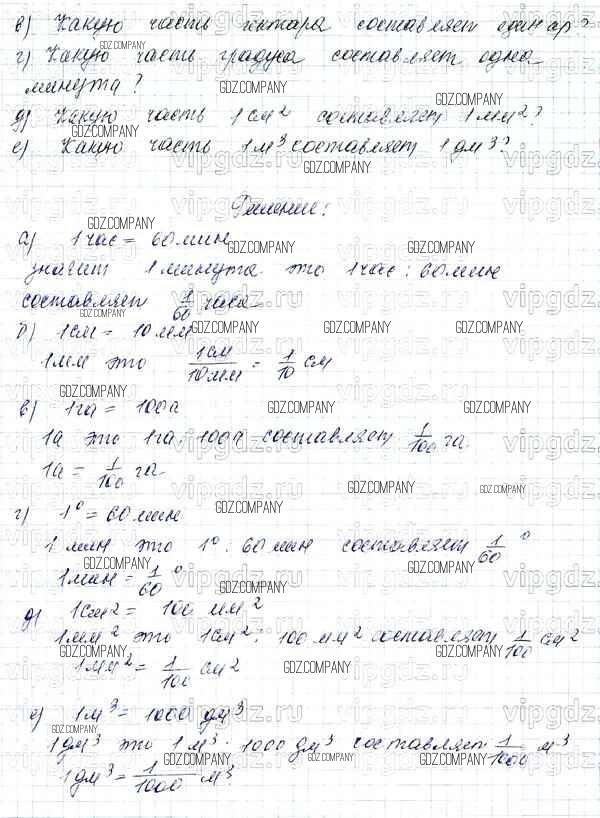 в) Какую часть гектара составляет один ар?
г) Какую часть градуса составляет одна
минута?
д) Какую часть 1 см² составляет 1 мм²?
е) Какую часть 1 м³ составляет 1 дм³?
Решение:
а) 1 час = 60 мин
значит 1 минута это 1 час : 60 мин
составляет 1/60 часа
б) 1 см = 10 мм
1 мм это 1 см/10 мм = 1/10 см
в) 1 га = 100 а
1 а это 1 га : 100 а составляет 1/100 га.
1 а = 1/100 га
г) 1° = 60 мин
1 мин это 1° : 60 мин составляет 1/60 °
1 мин = 1/60 °
д) 1 см² = 100 мм²
1 мм² это 1 см² : 100 мм² составляет 1/100 см²
1 мм² = 1/100 см²
е) 1 м³ = 1000 дм³
1 дм³ это 1 м³ : 1000 дм³ составляет 1/1000 м³
1 дм³ = 1/1000 м³